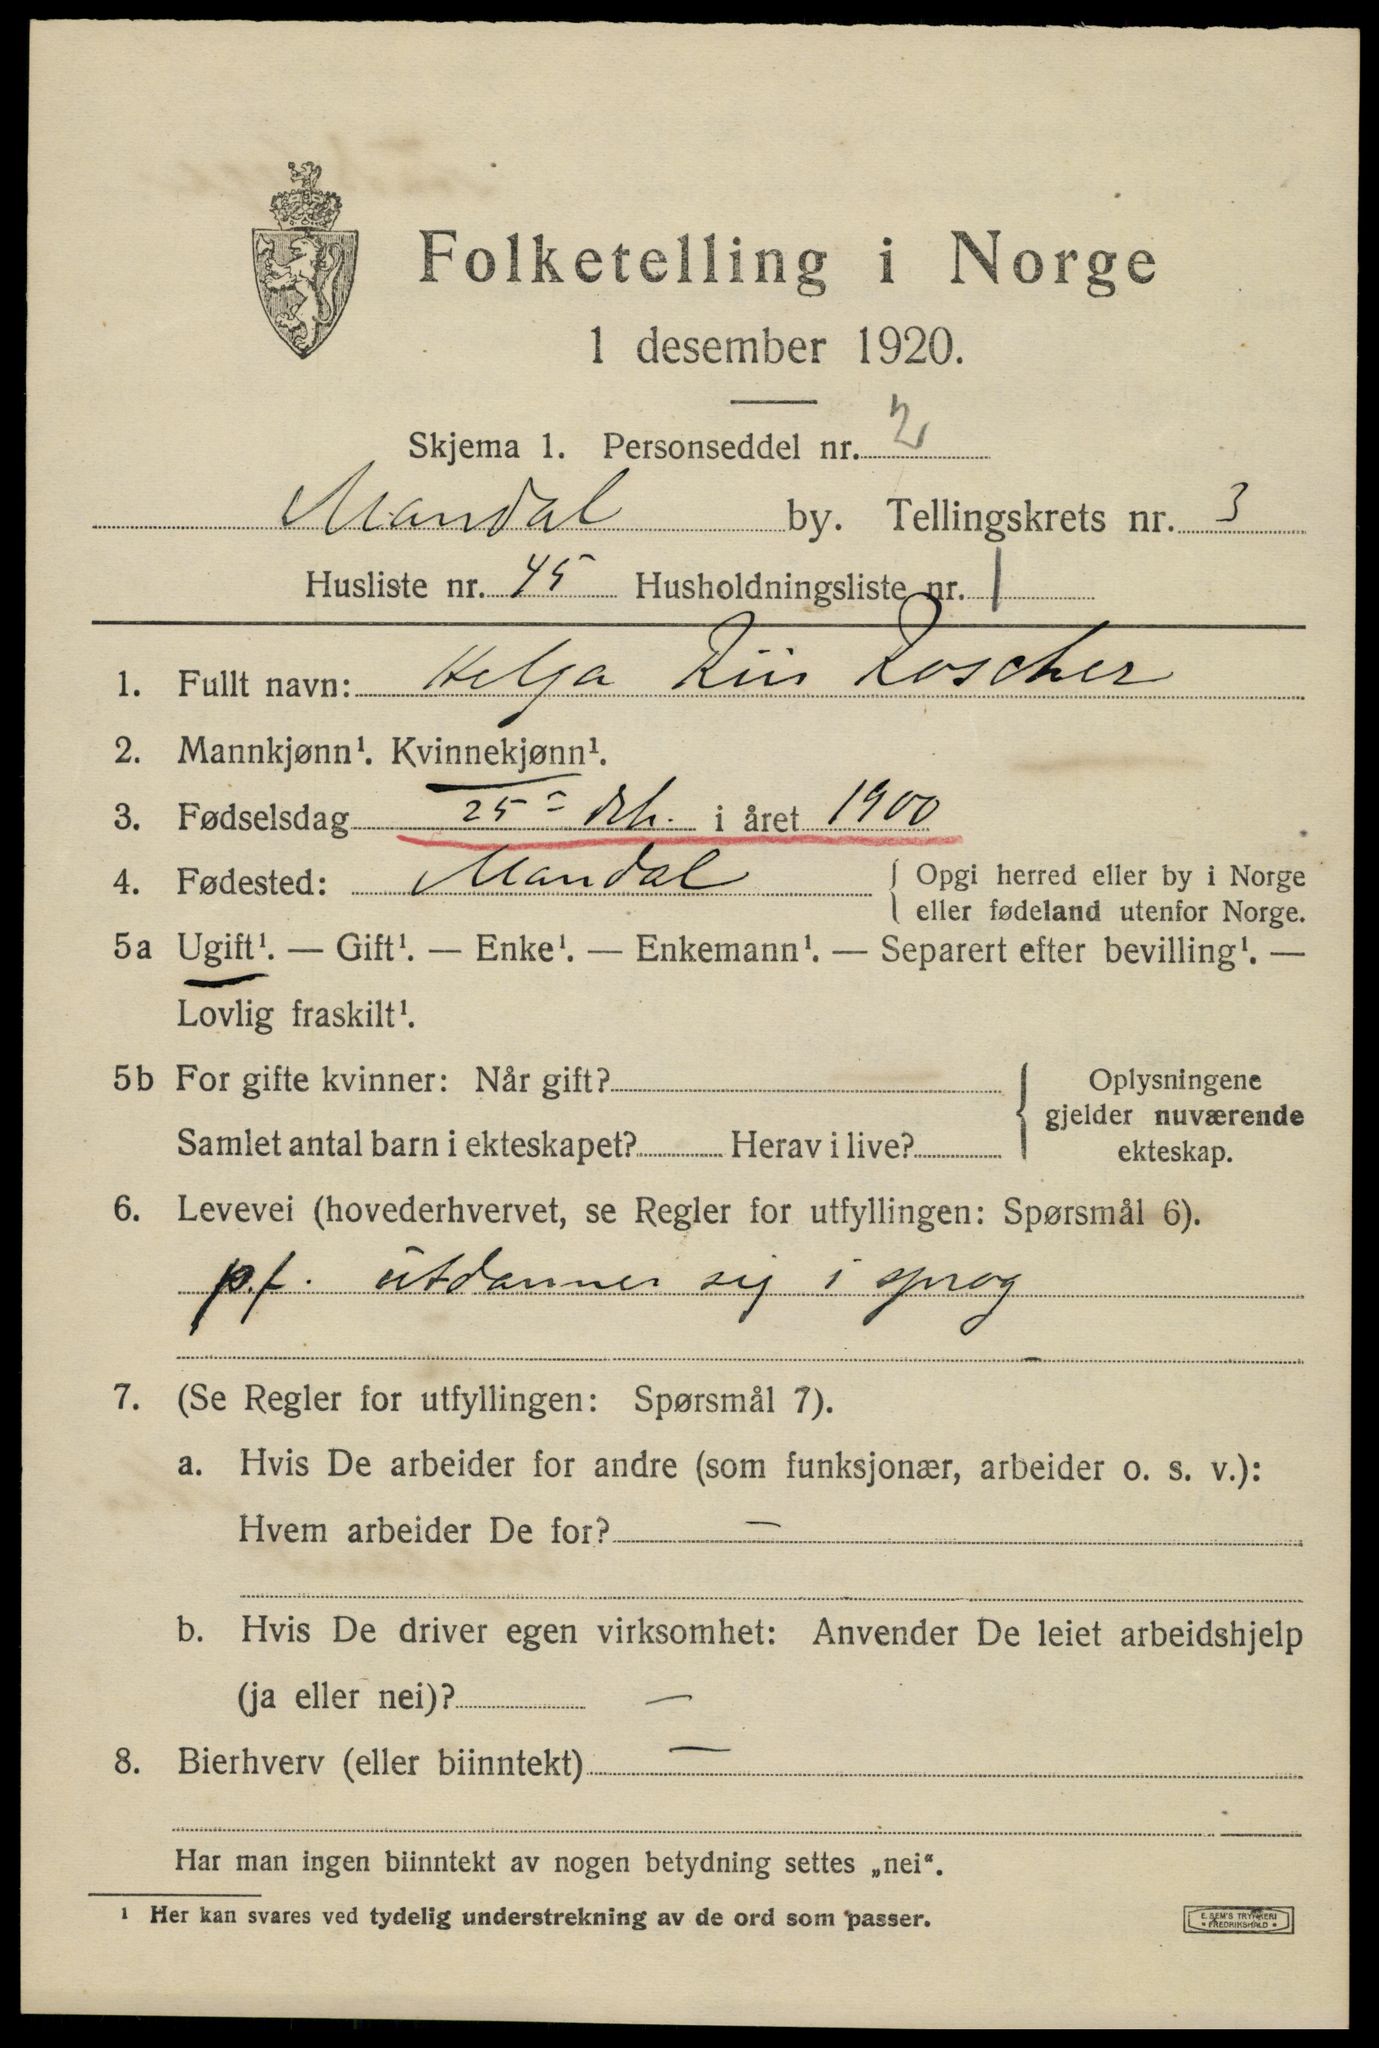 Folketelling i Norge
1 desember 1920.
Skjema 1. Personseddel nr. 2
Mandal by. Tellingskrets nr. 3
Husliste nr. 45 Husholdningsliste nr. 1
1. Fullt navn: Helga Riis Roscher
2. Mannkjønn¹. Kvinnekjønn¹.
3. Fødselsdag 25 i året 1900
4. Fødested: Mandal { Opgi herred eller by i Norge
eller fødeland utenfor Norge.
5a Ugift¹. — Gift¹. — Enke¹. — Enkemann¹. — Separert efter bevilling¹. —
Lovlig fraskilt¹.
5b For gifte kvinner: Når gift? { Oplysningene
gjelder nuværende
Samlet antal barn i ekteskapet? Herav i live? ekteskap.
6. Levevei (hovederhvervet, se Regler for utfyllingen: Spørsmål 6).
p.f. utdanner sig i sprog
7. (Se Regler for utfyllingen: Spørsmål 7).
a. Hvis De arbeider for andre (som funksjonær, arbeider o. s. v.):
Hvem arbeider De for? —
b. Hvis De driver egen virksomhet: Anvender De leiet arbeidshjelp
(ja eller nei)? —
8. Bierhverv (eller biinntekt) —
Har man ingen biinntekt av nogen betydning settes „nei“.
¹ Her kan svares ved tydelig understrekning av de ord som passer.
E. SEM'S TRYKKERI
• FREDRIKSHALD •